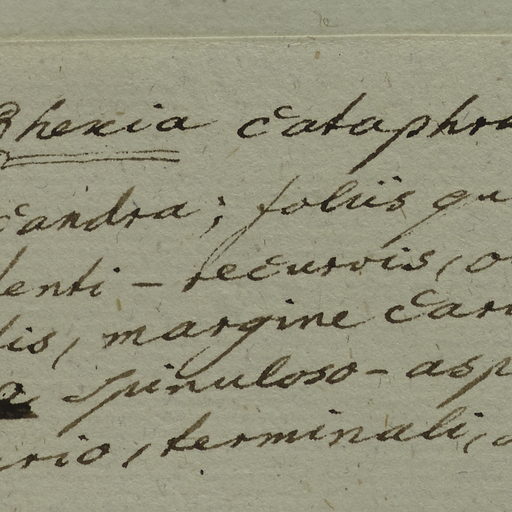 Rhexia cataphra
candra; foliis qu
denti - recurvis, o
lis, margine cari
a spinuloso - asp
ario, terminali,